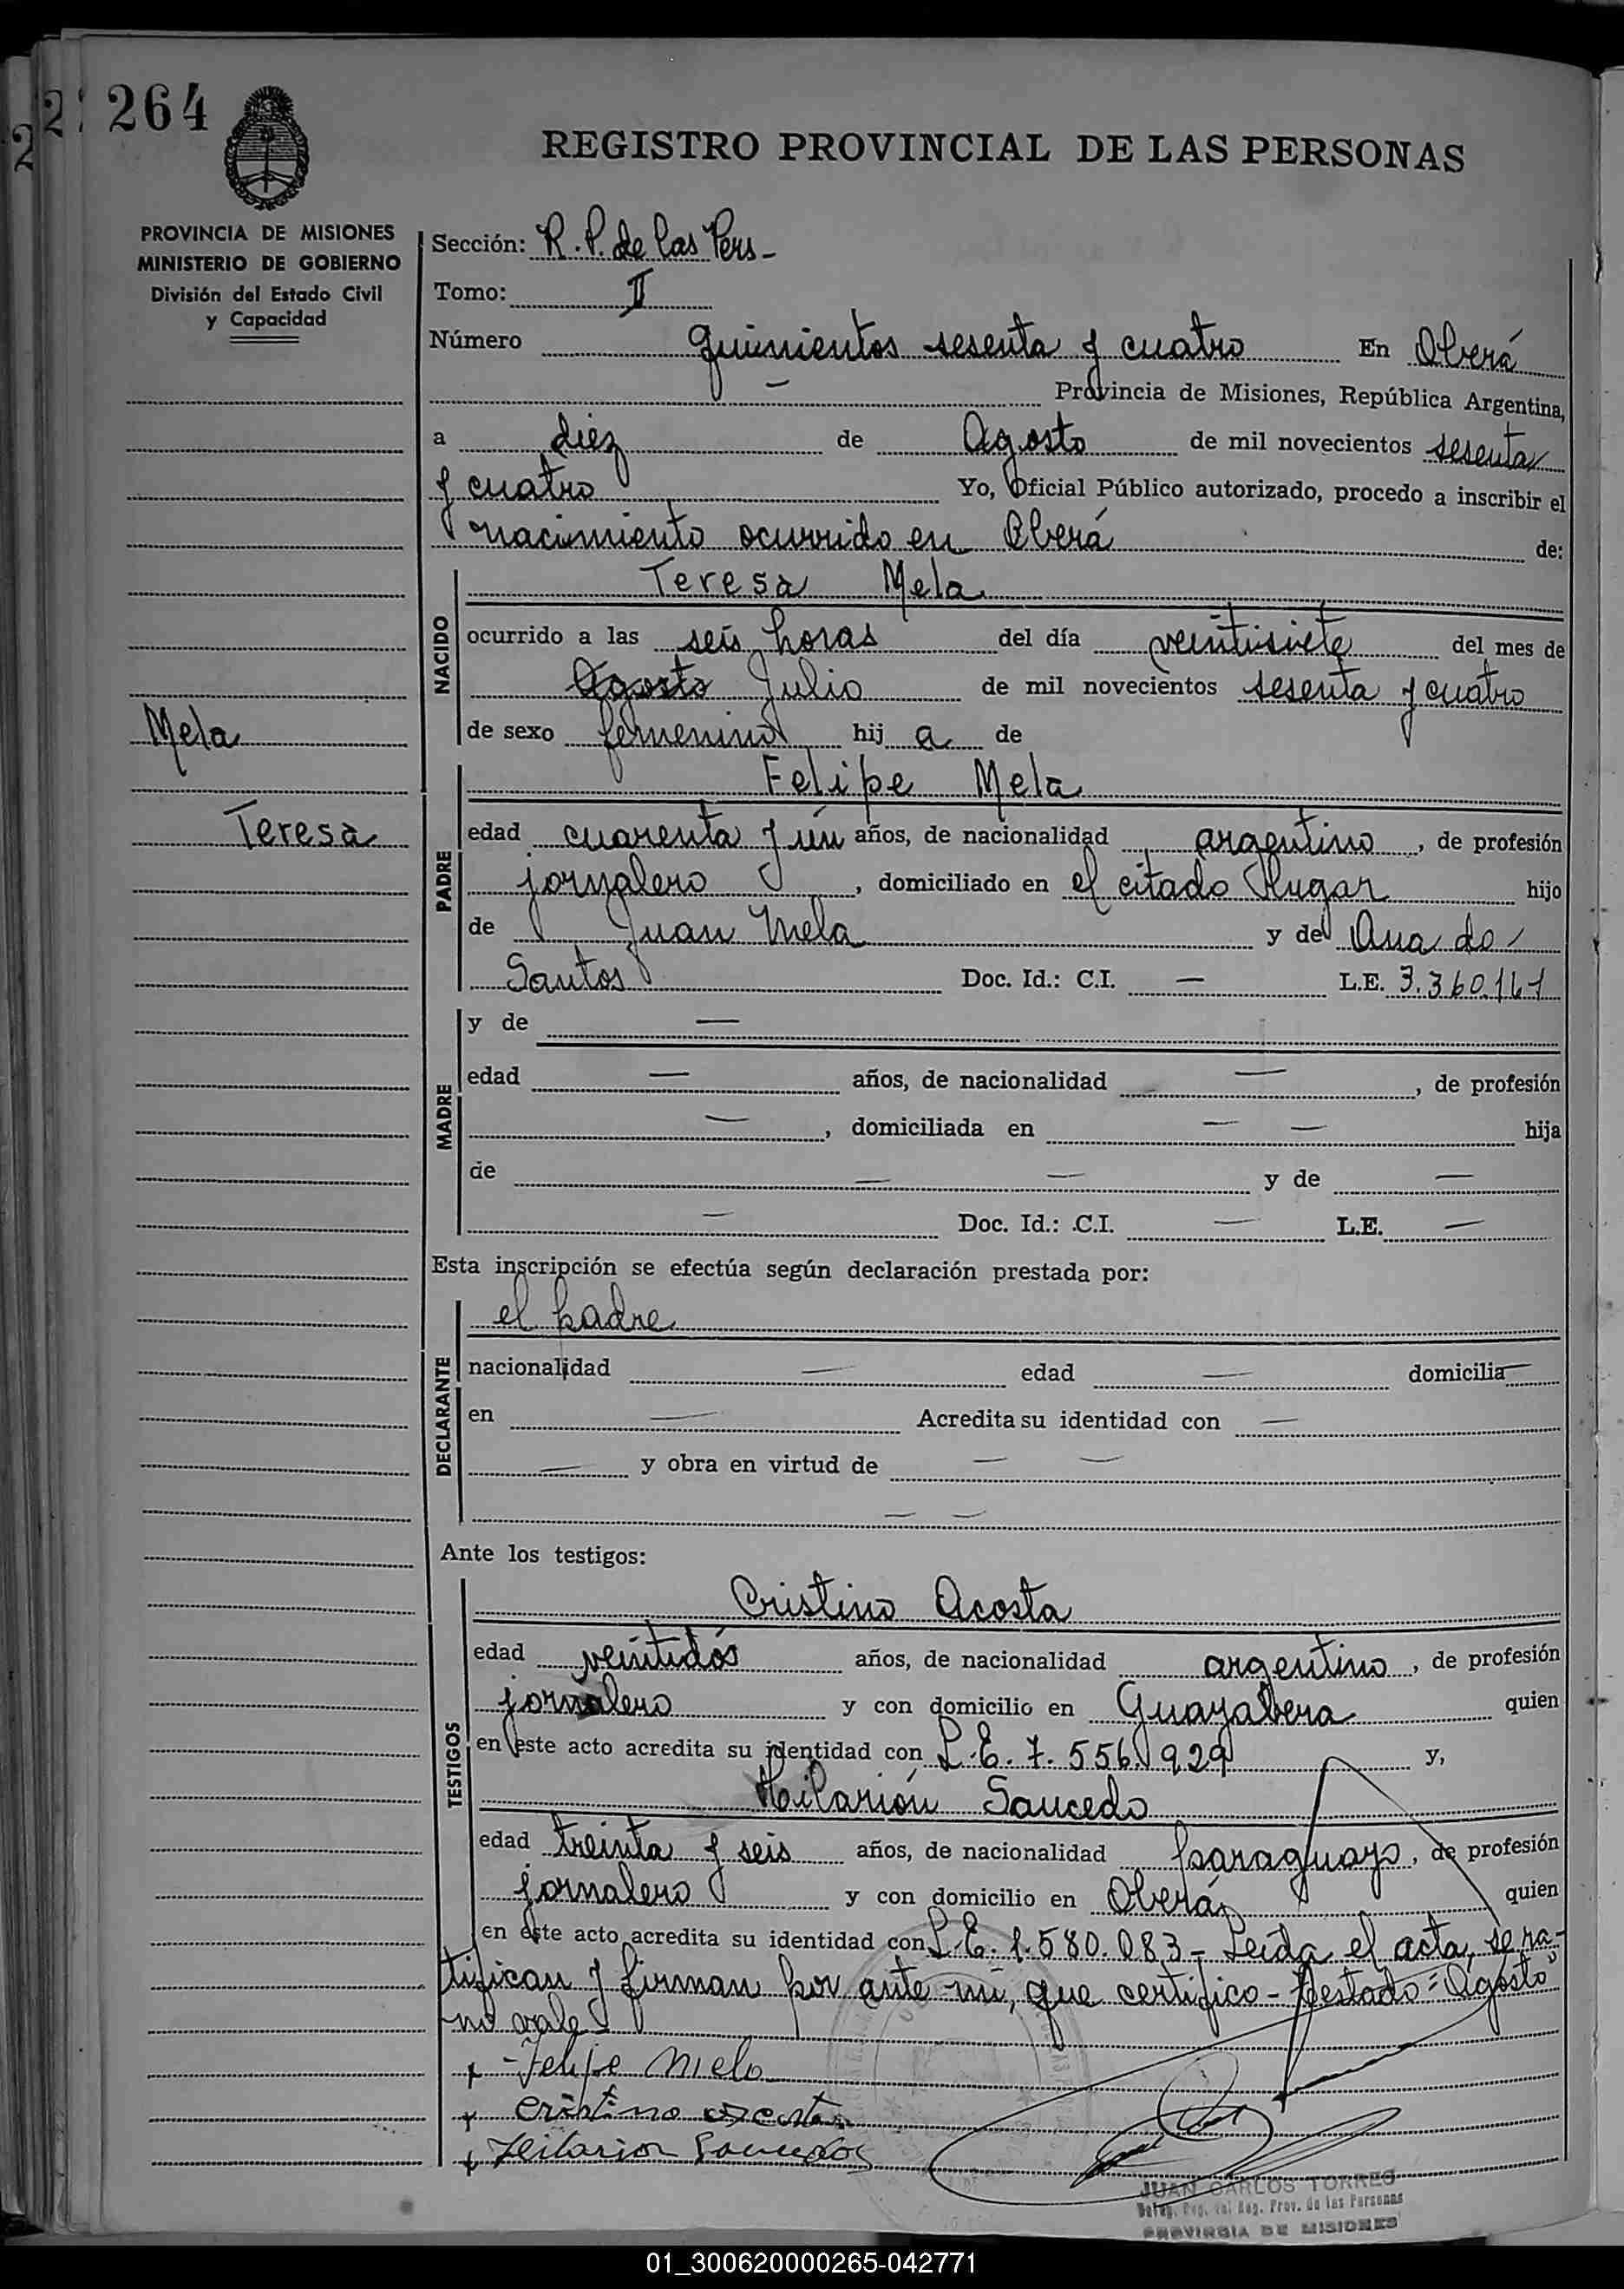 264
REGISTRO PROVINCIAL DE LAS PERSONAS
PROVINCIA DE MISIONES
MINISTERIO DE GOBIERNO
División del Estado Civil
y Capacidad
Sección: R. P. de las Pers-
Tomo: II
Número quinientos sesenta y cuatro En Oberá
Provincia de Misiones, República Argentina,
a diez de Agosto de mil novecientos sesenta
y cuatro Yo, Oficial Público autorizado, procedo a inscribir el
nacimiento ocurrido en Oberá de:
NACIDO
Teresa Mela
ocurrido a las seis horas del día veintisiete del mes de
Agosto Julio de mil novecientos sesenta y cuatro
de sexo femenino hij a de
Mela
Teresa
PADRE
Felipe Mela
edad cuarenta y un años, de nacionalidad argentino, de profesión
jornalero, domiciliado en el citado lugar hijo
de Juan Mela y de Ana do
Santos Doc. Id.: C.I. — L.E. 3.360.161
MADRE
y de —
edad — años, de nacionalidad —, de profesión
—, domiciliada en — — hija
de — — y de —
— Doc. Id.: C.I. — L.E. —
Esta inscripción se efectúa según declaración prestada por:
DECLARANTE
el padre
nacionalidad — edad — domicilia—
en — Acredita su identidad con —
— y obra en virtud de — —
— —
Ante los testigos:
TESTIGOS
Cristino Acosta
edad veintidós años, de nacionalidad argentino, de profesión
jornalero y con domicilio en Guayabera quien
en este acto acredita su identidad con L.E. 7.556.929 y,
Hilarión Saucedo
edad treinta y seis años, de nacionalidad paraguayo, de profesión
jornalero y con domicilio en Oberá quien
en este acto acredita su identidad con L.E. 1.580.083- Leída el acta, se ra-
tifican y firman por ante mi, que certifico- Testado="Agosto"
no vale
+ -Felipe Melo
+ cristino acosta
+ Hilarion
JUAN CARLOS TORRES
Reg. Prov. de las Personas
PROVINCIA DE MISIONES
01_300620000265-042771